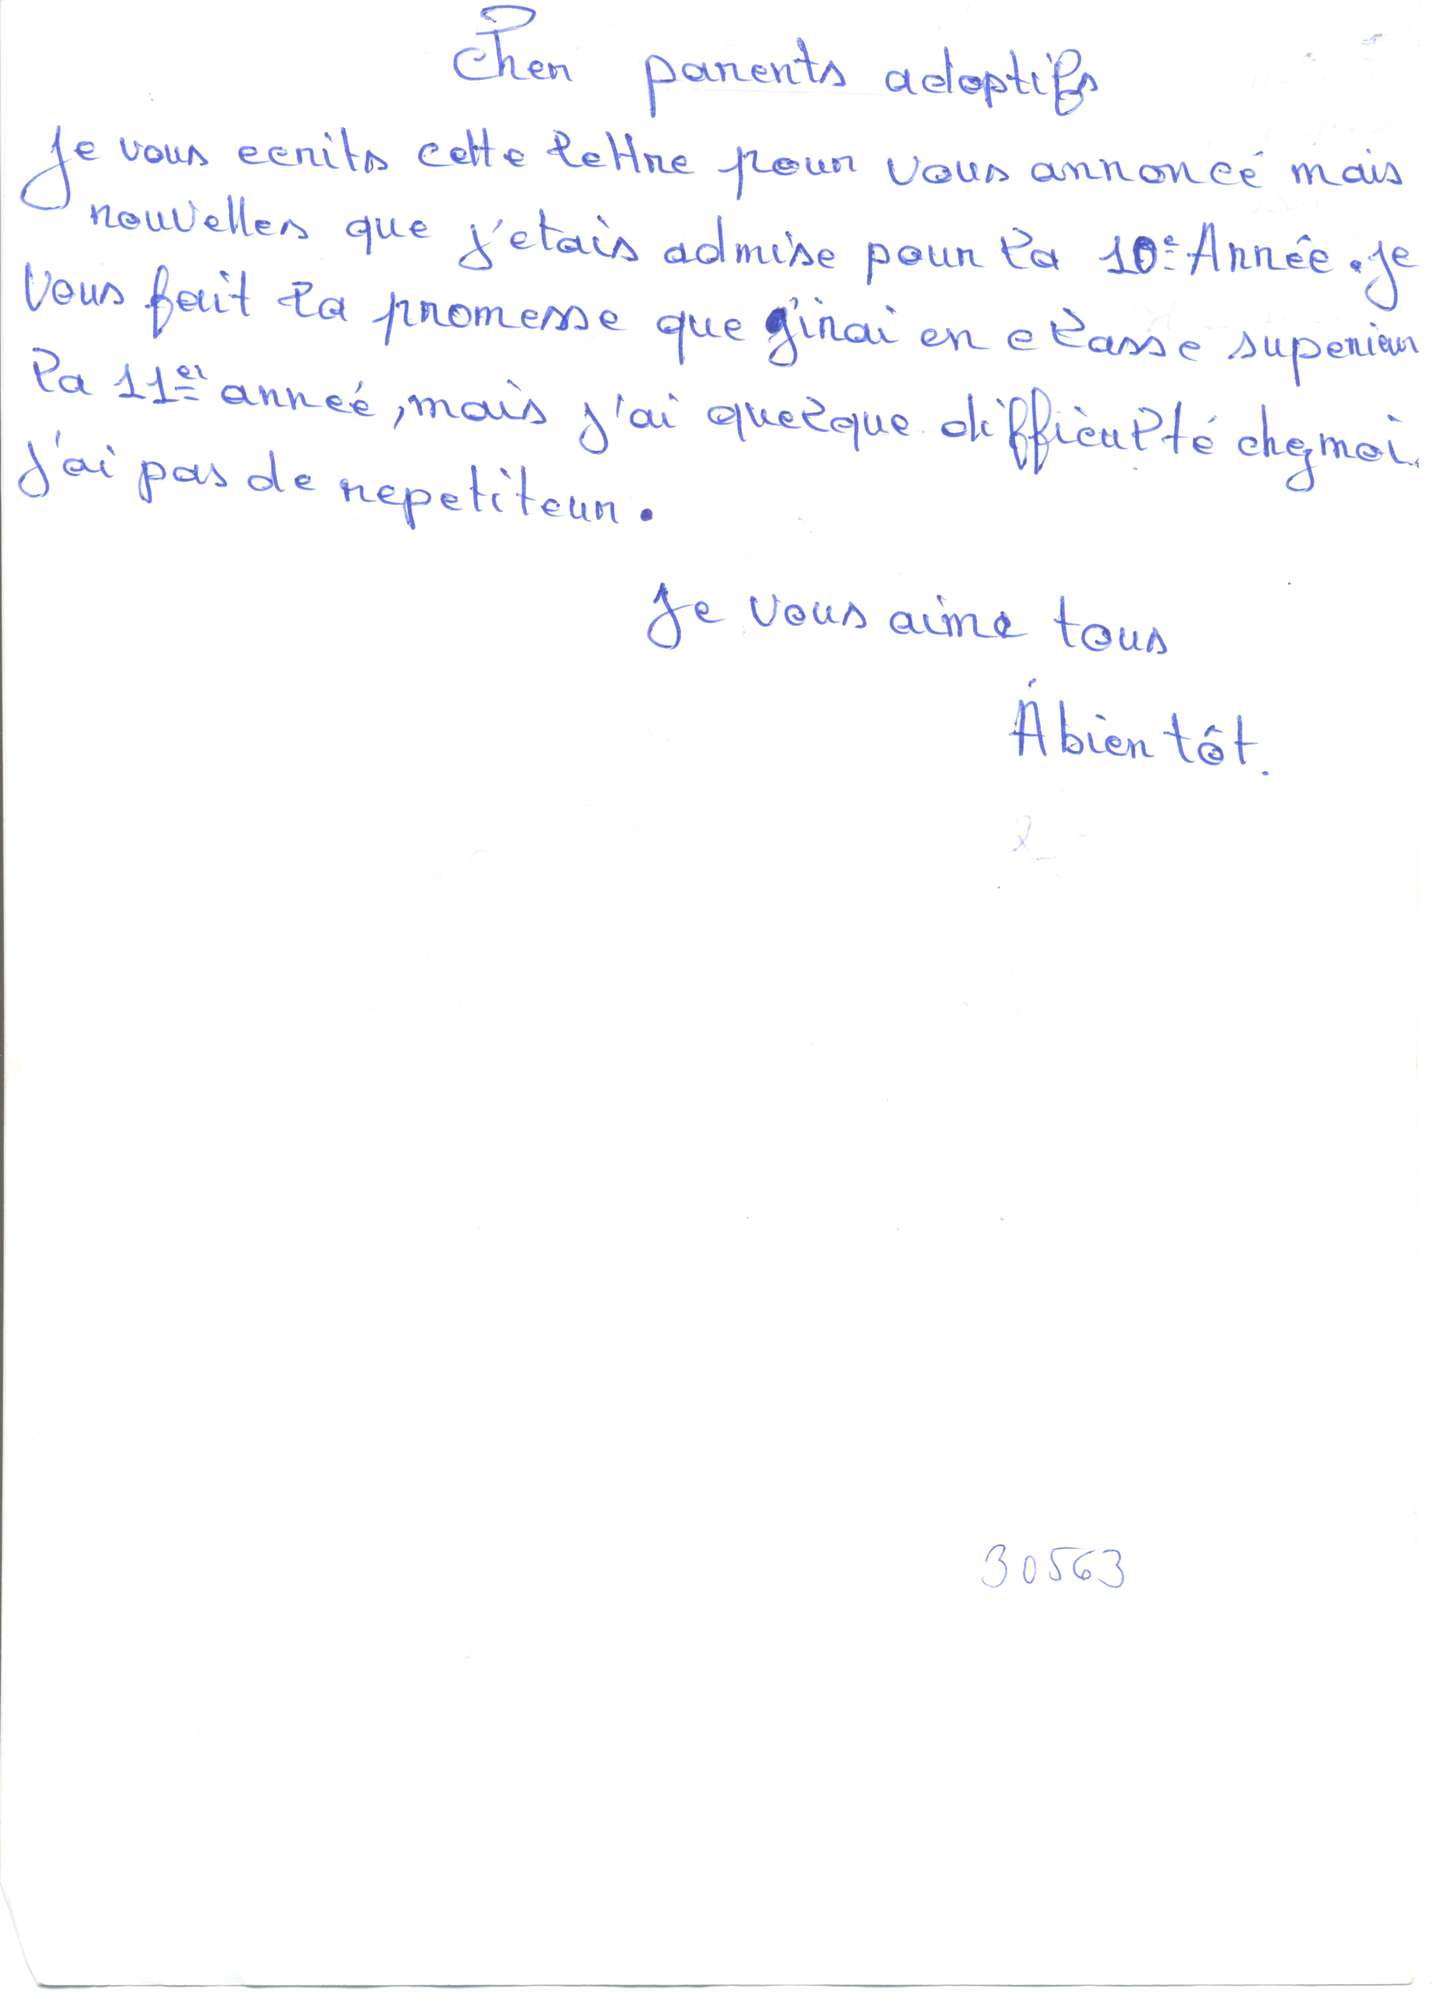 Cher parents adoptifs
Je vous ecrits cette lettre pour vous annoncé mais
nouvelles que j'etais admise pour la 10e Année. je
Vous fait la promesse que j'irai en classe superieur
la 11er anneé, mais j'ai quelque difficulté chez moi.
j'ai pas de repetiteur.
Je vous aime tous
Á bien tôt.
30563